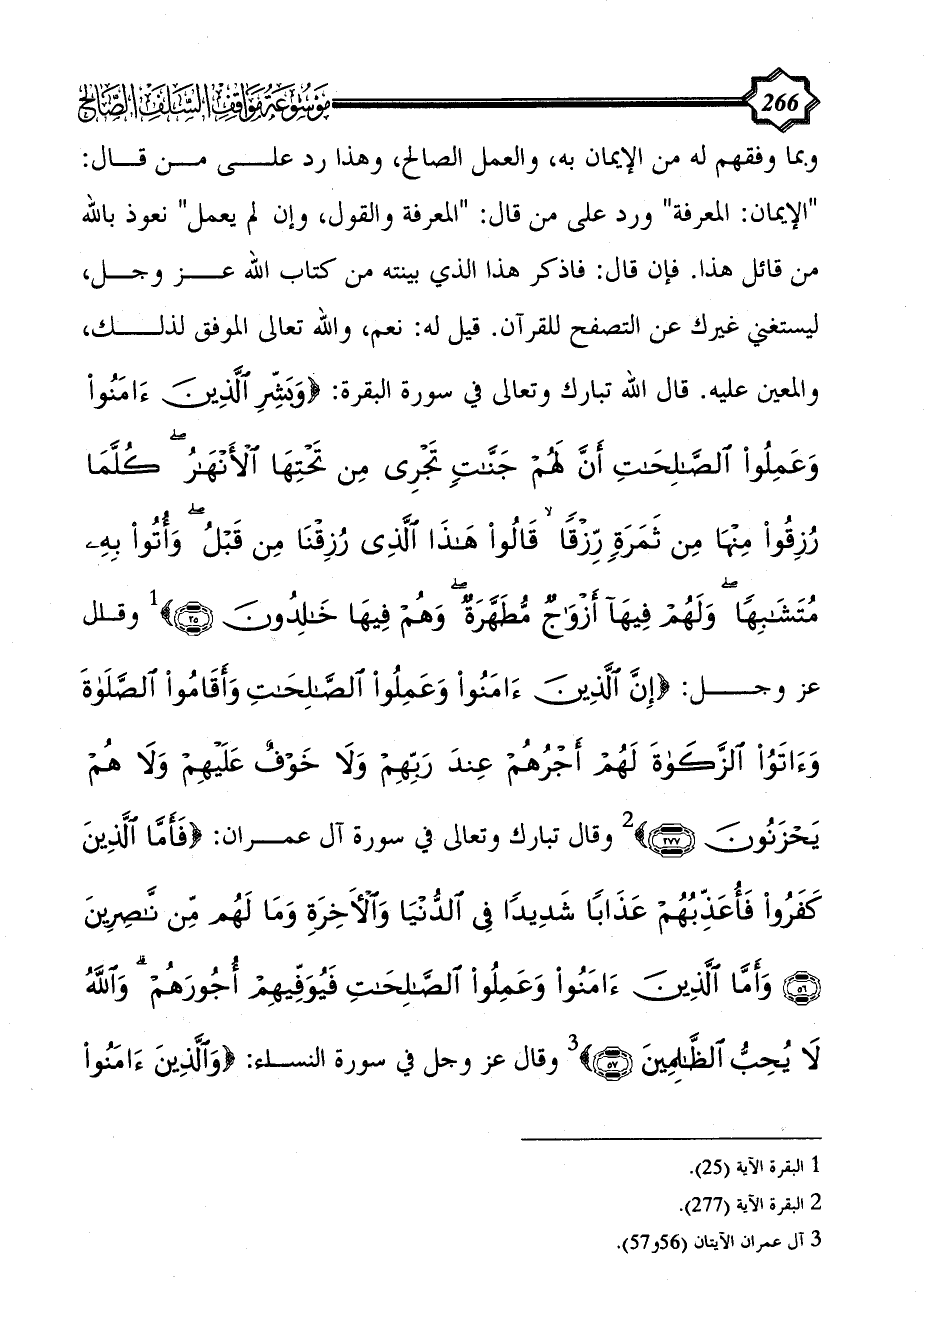 266 موسوعة مواقف السلف الصالح
وبما وفقهم له من الإيمان به، والعمل الصالح، وهذا رد على من قال:
"الإيمان: المعرفة" ورد على من قال: "المعرفة والقول، وإن لم يعمل" نعوذ بالله
من قائل هذا. فإن قال: فاذكر هذا الذي بينته من كتاب الله عز وجل،
ليستغني غيرك عن التصفح للقرآن. قيل له: نعم، والله تعالى الموفق لذلك،
والمعين عليه. قال الله تبارك وتعالى في سورة البقرة: ﴿وَبَشِّرِ ٱلَّذِينَ ءَامَنُوا۟
وَعَمِلُوا۟ ٱلصَّـٰلِحَـٰتِ أَنَّ لَهُمْ جَنَّـٰتٍ تَجْرِى مِن تَحْتِهَا ٱلْأَنْهَـٰرُ ۖ كُلَّمَا
رُزِقُوا۟ مِنْهَا مِن ثَمَرَةٍ رِّزْقًا ۙ قَالُوا۟ هَـٰذَا ٱلَّذِى رُزِقْنَا مِن قَبْلُ ۖ وَأُتُوا۟ بِهِۦ
مُتَشَـٰبِهًا ۖ وَلَهُمْ فِيهَآ أَزْوَٰجٌ مُّطَهَّرَةٌ ۖ وَهُمْ فِيهَا خَـٰلِدُونَ ٢٥﴾1 وقال
عز وجل: ﴿إِنَّ ٱلَّذِينَ ءَامَنُوا۟ وَعَمِلُوا۟ ٱلصَّـٰلِحَـٰتِ وَأَقَامُوا۟ ٱلصَّلَوٰةَ
وَءَاتَوُا۟ ٱلزَّكَوٰةَ لَهُمْ أَجْرُهُمْ عِندَ رَبِّهِمْ وَلَا خَوْفٌ عَلَيْهِمْ وَلَا هُمْ
يَحْزَنُونَ ٢٧٧﴾2 وقال تبارك وتعالى في سورة آل عمران: ﴿فَأَمَّا ٱلَّذِينَ
كَفَرُوا۟ فَأُعَذِّبُهُمْ عَذَابًا شَدِيدًا فِى ٱلدُّنْيَا وَٱلْـَٔاخِرَةِ وَمَا لَهُم مِّن نَّـٰصِرِينَ
٥٦ وَأَمَّا ٱلَّذِينَ ءَامَنُوا۟ وَعَمِلُوا۟ ٱلصَّـٰلِحَـٰتِ فَيُوَفِّيهِمْ أُجُورَهُمْ ۗ وَٱللَّهُ
لَا يُحِبُّ ٱلظَّـٰلِمِينَ ٥٧﴾3 وقال عز وجل في سورة النساء: ﴿وَٱلَّذِينَ ءَامَنُوا۟
1 البقرة الآية (25).
2 البقرة الآية (277).
3 آل عمران الآيتان (56و57).